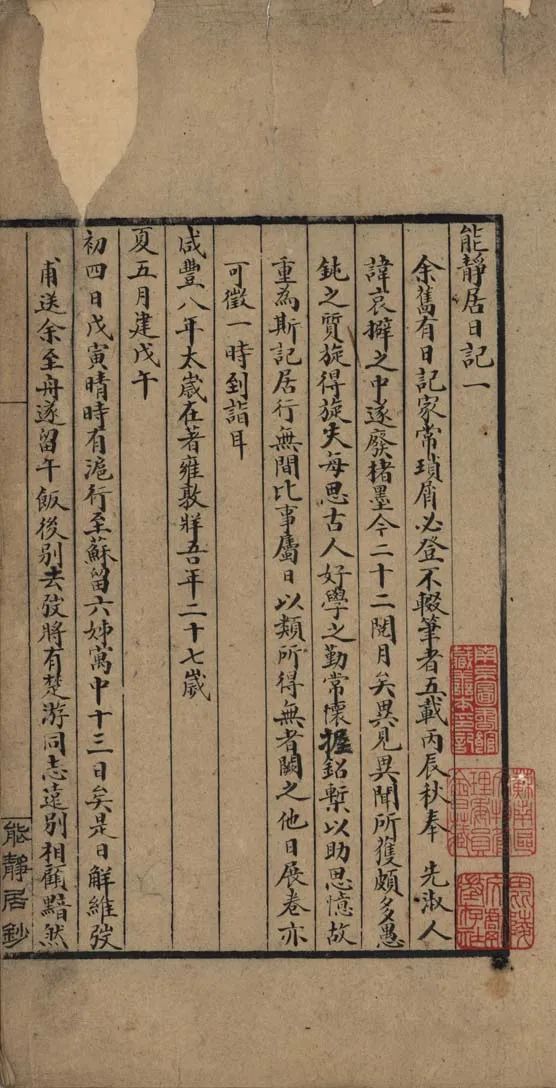 能靜居日記一
余舊有日記家常瑣屑必登不輟筆者五載丙辰秋奉　先淑人
諱哀擗之中遂廢楮墨今二十二閱月矣異見異聞所獲頗多愚
鈍之質旋得旋失每思古人好學之勤常懷握鉛槧以助思憶故
重為斯記居行無間比事屬日以類所得無者闕之他日展卷亦
可徵一時到詣耳
咸豐八年太歲在著雍敦牂吾年二十七歲
夏五月建戊午
初四日戊寅晴時有滬行至蘇留六姊寓中十三日矣是日解維弢
甫送余至舟遂留午飯後別去弢將有楚游同志遠別相顧黯然
能靜居鈔
南京圖書館
藏善本書記